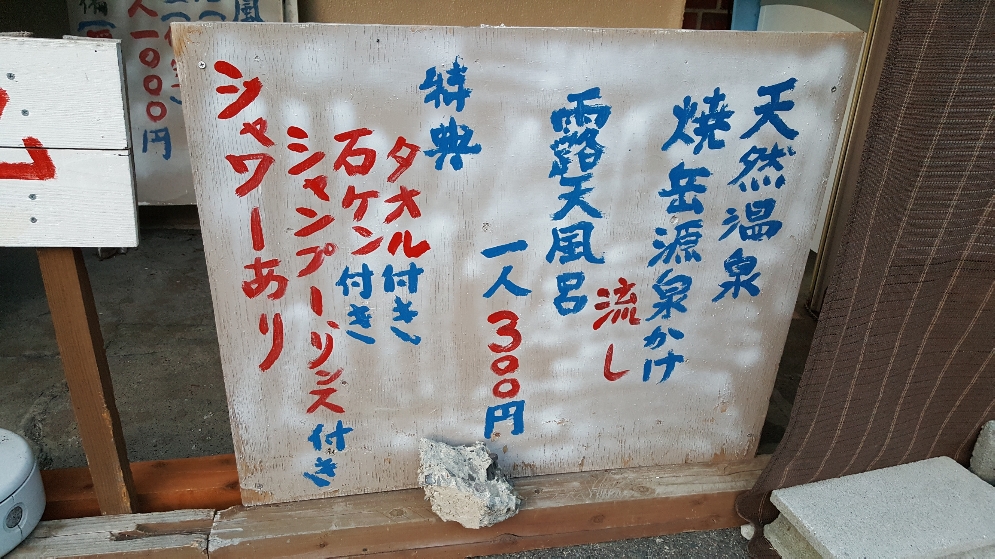 天然温泉
焼岳源泉かけ
流し
露天風呂
一人300円
特典
タオル付き
石ケン付き
シャンプーリンス付き
シャワーあり
風
人1000円